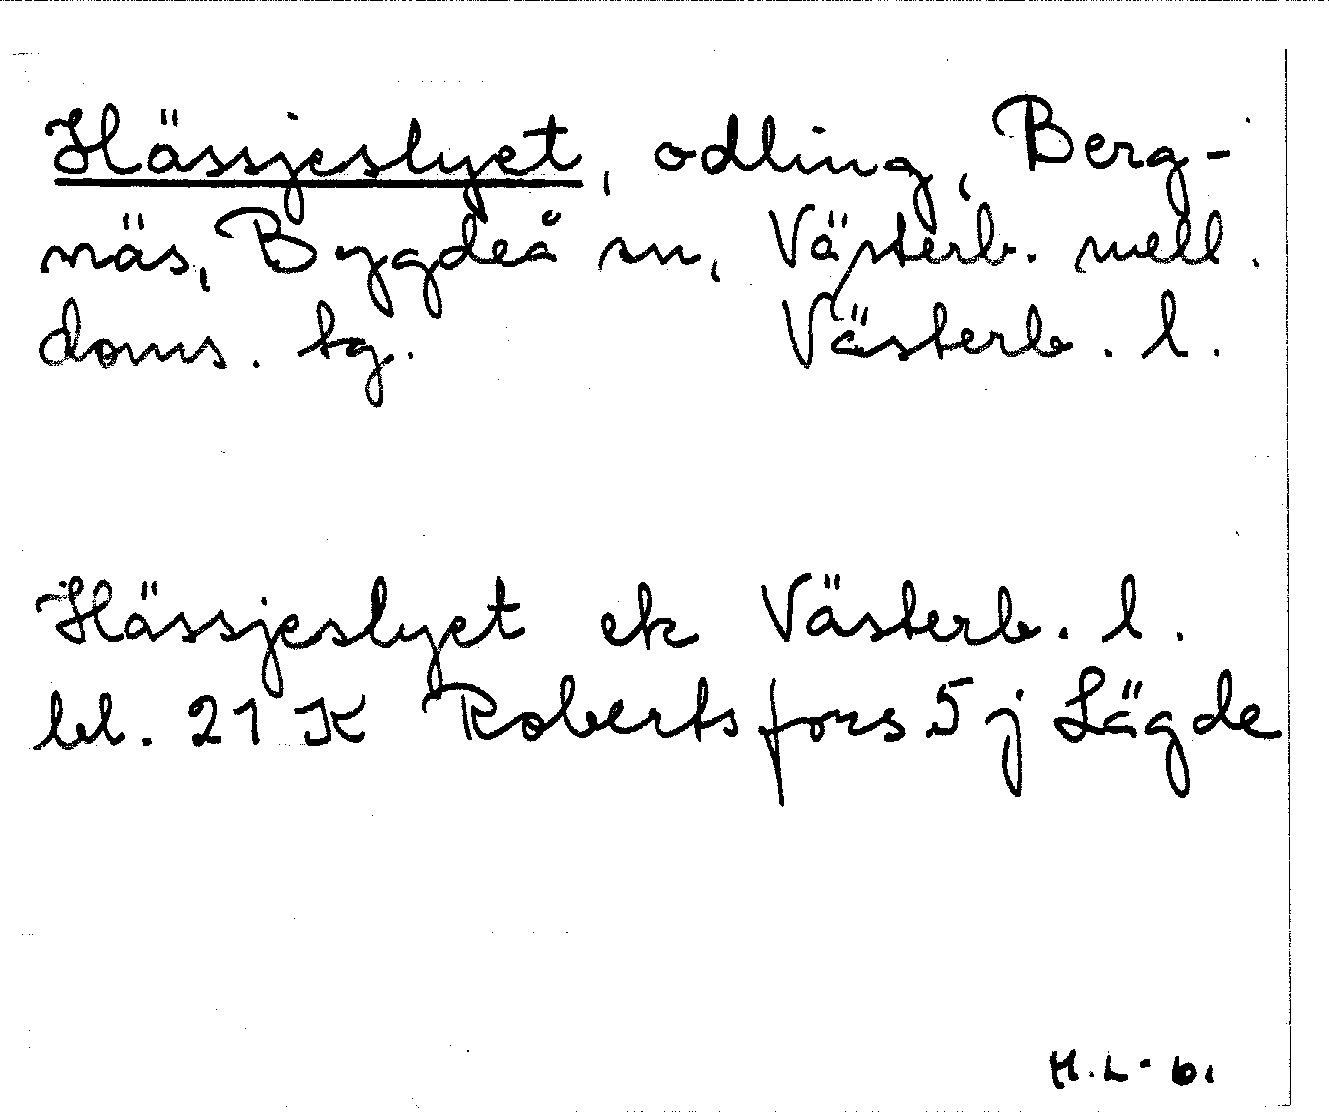 Hässjeslyet, odling, Berg-
näs, Bygdeå sn, Västerb. mell.
doms. tg. Västerb. l.
Hässjeslyet ek Västerb. l.
bl. 21 K Robertsfors 5 j Lägde
H.L-b.